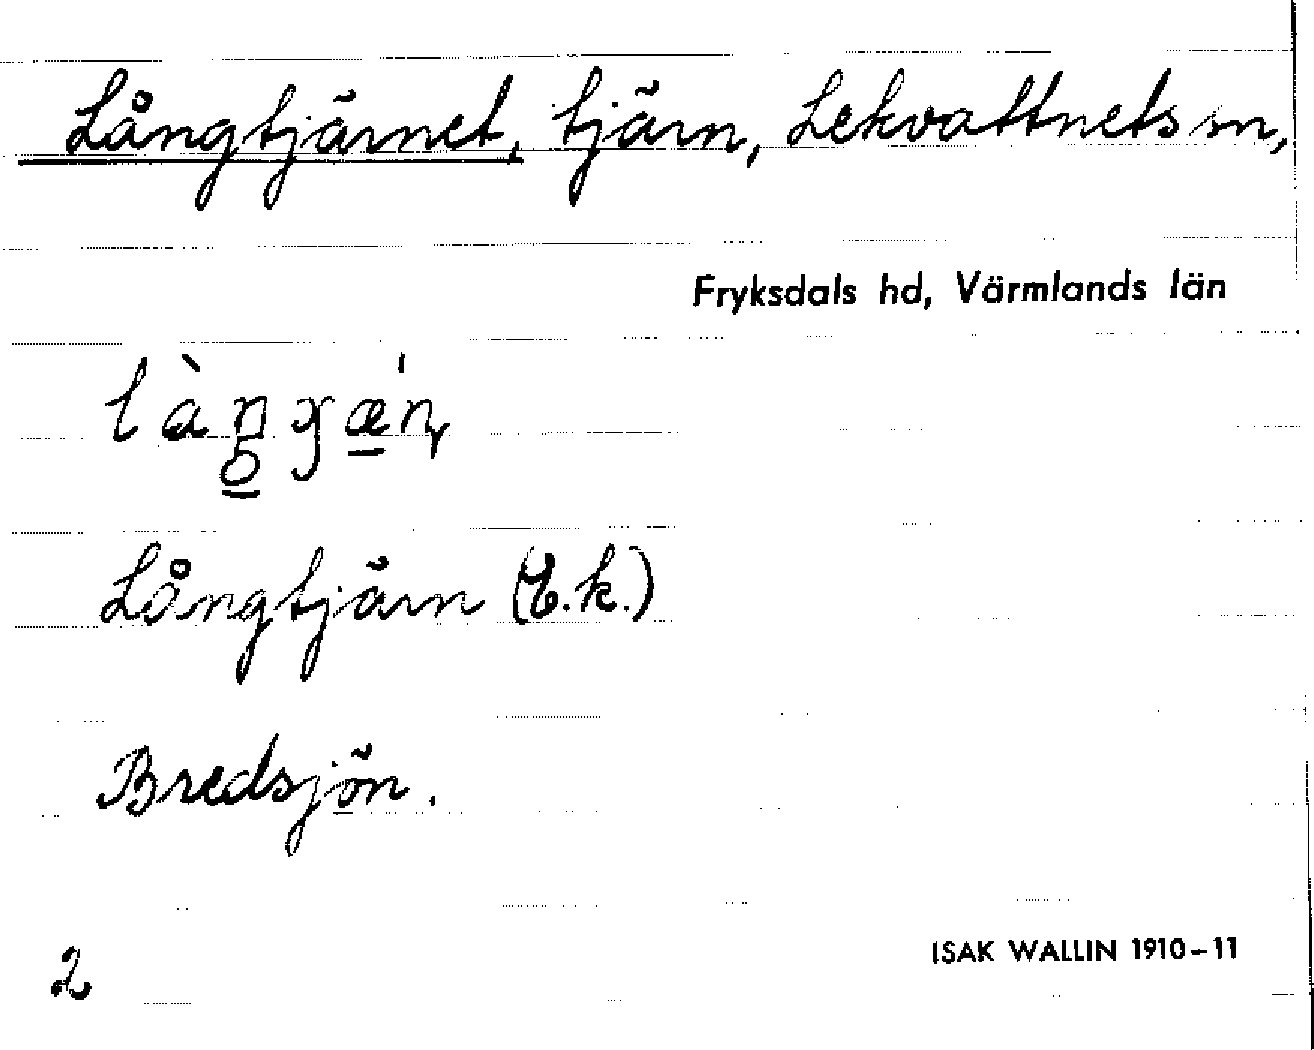 Långtjärnet, tjärn, Lekvattnets sn,
Fryksdals hd, Värmlands län
Långtjärn (E.k.)
Bredsjön.
2
ISAK WALLIN 1910-11